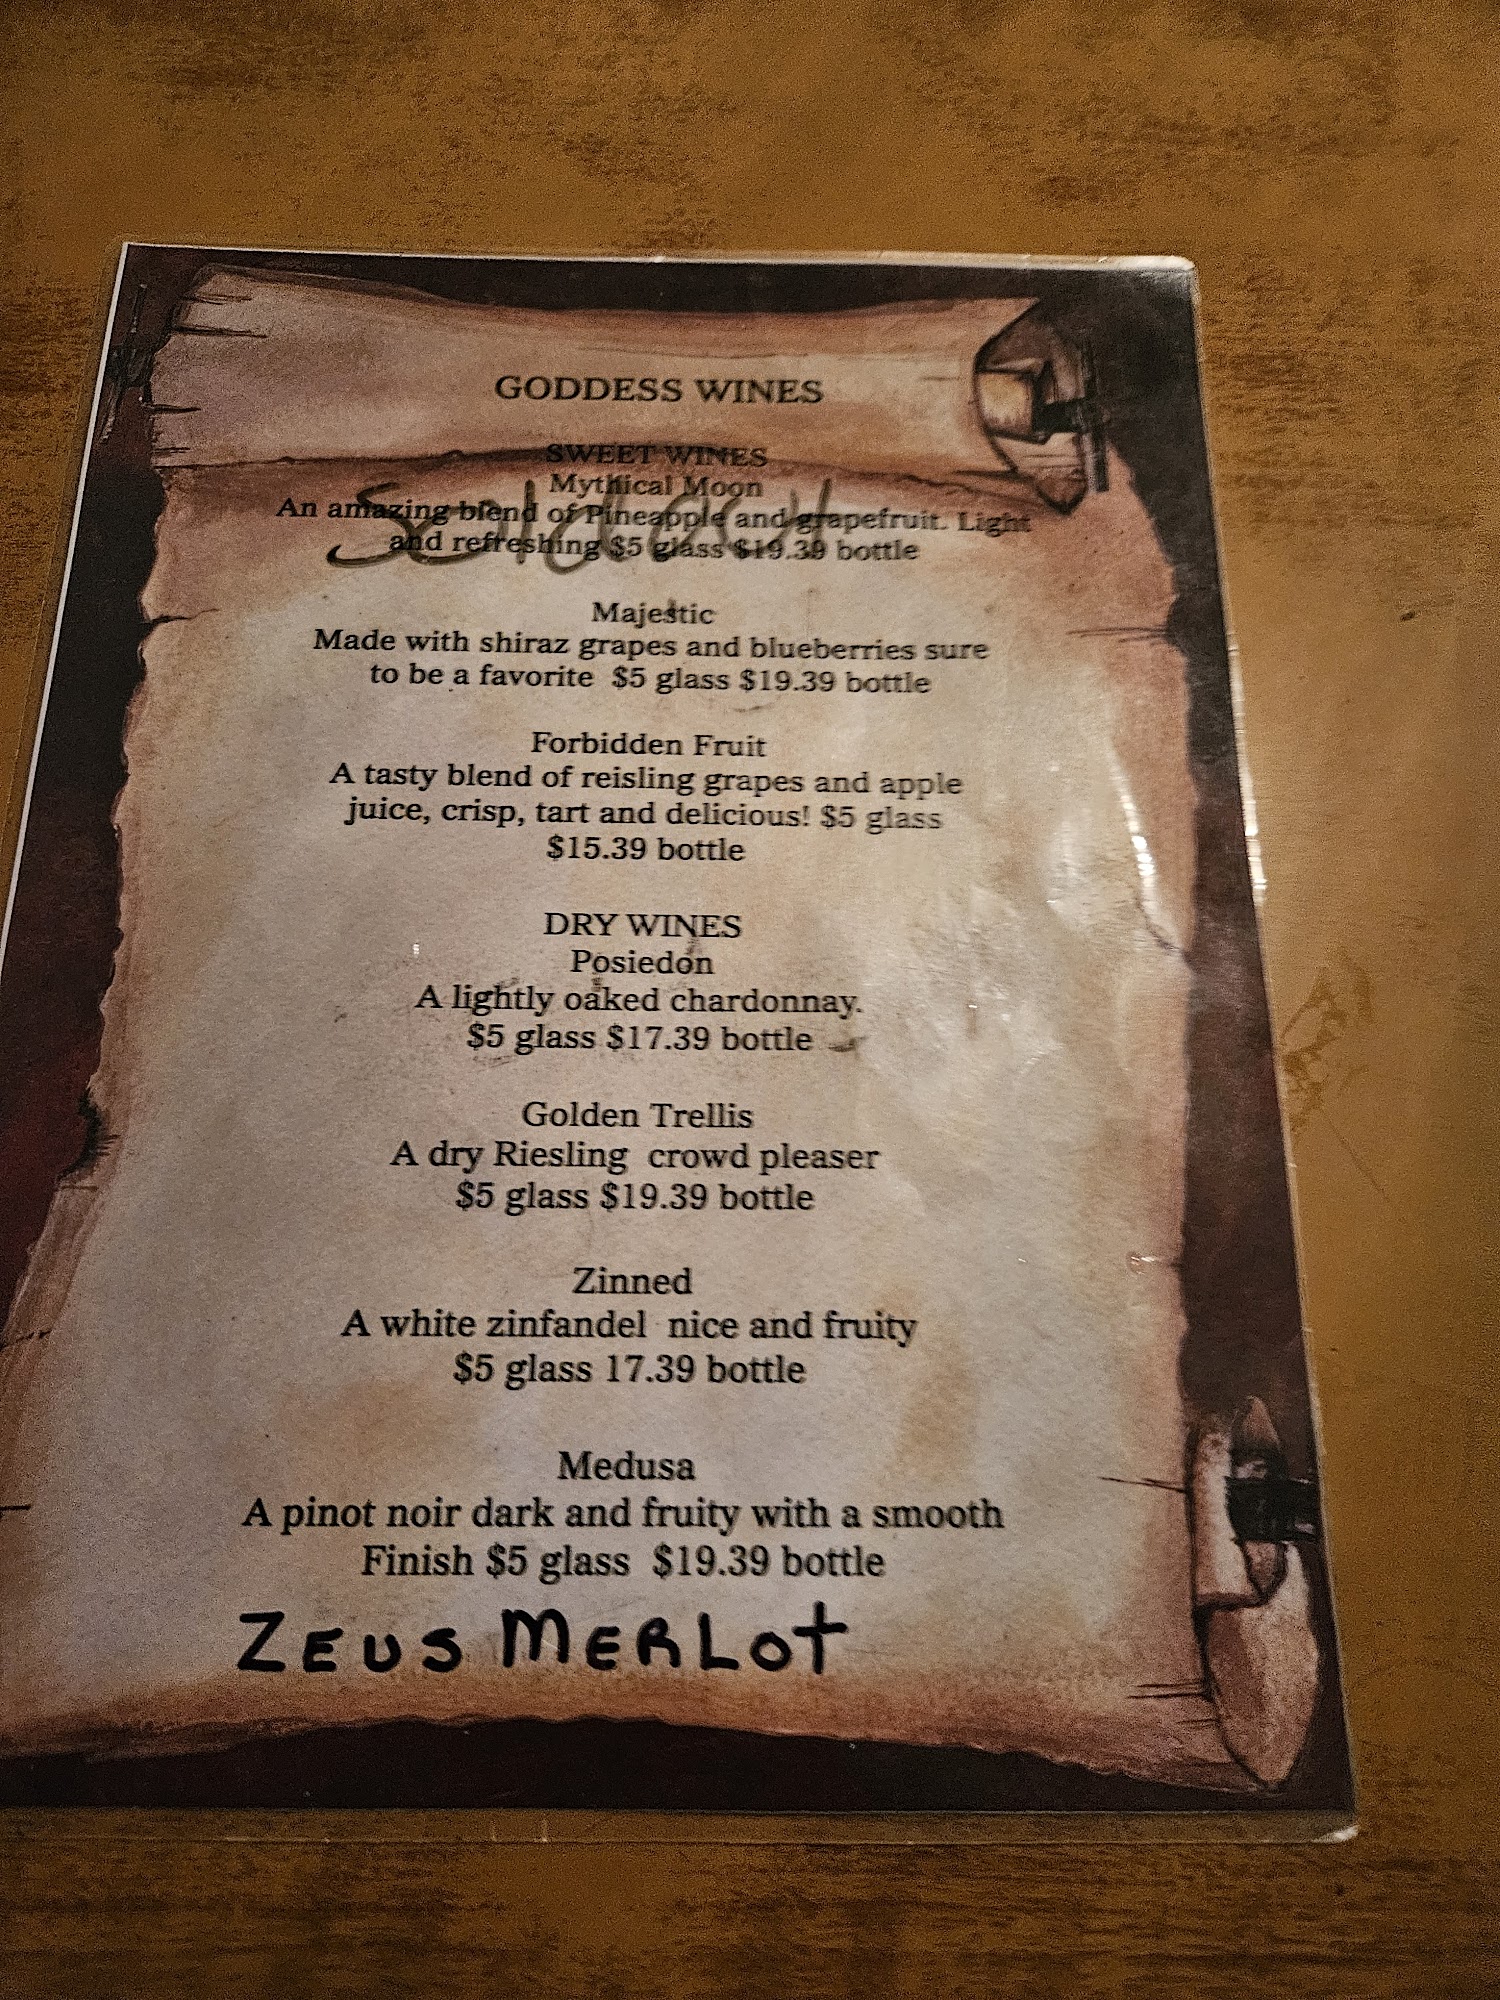 GODDESS WINES
SWEET WINES
Mythical Moon
An amazing blend of Pineapple and grapefruit. Light
and refreshing $5 glass $19.39 bottle
Majestic
Made with shiraz grapes and blueberries sure
to be a favorite $5 glass $19.39 bottle
Forbidden Fruit
A tasty blend of reisling grapes and apple
juice, crisp, tart and delicious! $5 glass
$15.39 bottle
DRY WINES
Posiedon
A lightly oaked chardonnay.
$5 glass $17.39 bottle
Golden Trellis
A dry Riesling crowd pleaser
$5 glass $19.39 bottle
Zinned
A white zinfandel nice and fruity
$5 glass 17.39 bottle
Medusa
A pinot noir dark and fruity with a smooth
Finish $5 glass $19.39 bottle
ZEUS MERLOT